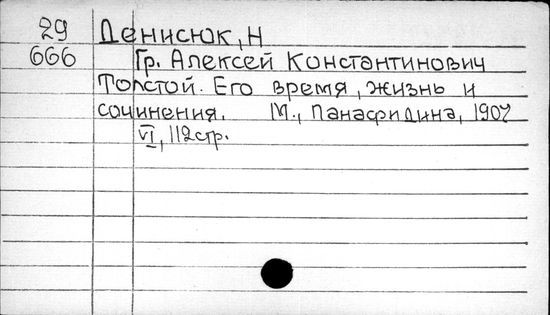 29 Денисюк, Н
666 Гр. Алексей Константинович
Толстой. Его время, жизнь и
сочинения. М., Панафидина, 1907
VI, 112 стр.